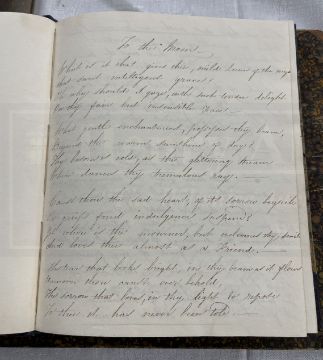 To the Moon
What is it that gives thee, mild Queen of the night
That sweet intelligent grace?
Or why should I gaze, with such tender delight
On thy fair but insensible face
What gentle enchantment, possesses thy beam,
Beyond the warm sunshine of day?
Thy bosom is cold, as the glittering stream
Where dances thy tremulous ray.
Canst thou the sad heart, of its sorrow beguile
Or grief's fond indulgence suspend?
Yet where is the mourner, but welcomes thy smile
And loves thee almost as a Friend.
The tear that looks bright, in thy beam as it flows
Unmoved thou dost ever behold,
The sorrow that loves, in thy light to repose
To thee it has never been told